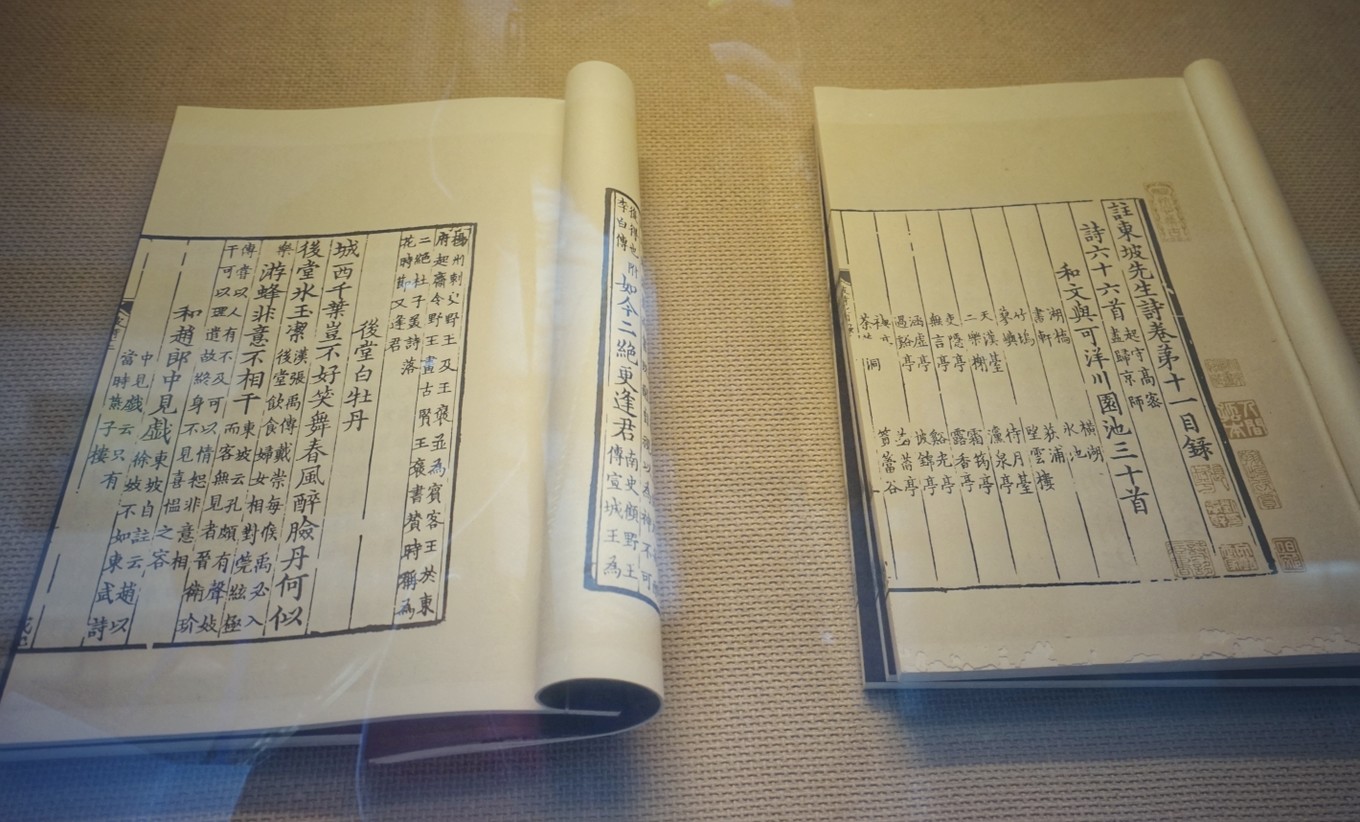 註東坡先生詩卷第十一目錄
詩六十六首 起守高密
盡歸京師
和文與可洋川園池三十首
湖橋 橫湖
書軒 冰池
竹塢 荻浦
蓼嶼 望雲樓
天漢臺 待月臺
二樂榭 灙泉亭
吏隱亭 霜筠亭
無言亭 露香亭
涵虛亭 谿光亭
過谿亭 披錦亭
禊亭 菡萏亭
荼 洞 篔簹谷
李白傳 附 如今二絕更逢君 南史顧野王
傳宣城王為
揚州刺史野王及王褒並為賓客王於東
府起齋令野王畫古賢王褒書贊時稱為
二絕杜子美詩落
花時節又逢君
後堂白牡丹
城西千葉豈不好笑舞春風醉臉丹何似
後堂冰玉潔 漢張禹傳戴崇每候禹必入
後堂飲食婦女相對筦絃極
樂 游蜂非意不相干 東坡云孔頗有聲妓
而客無見者晉衛玠
傳嘗以人有不及可以情恕非意相
干可以理遣故終身不見喜慍之容
和趙郎中見戲 東坡自註云趙以
徐妓不如東武詩
中見戲云只有
當時燕子樓